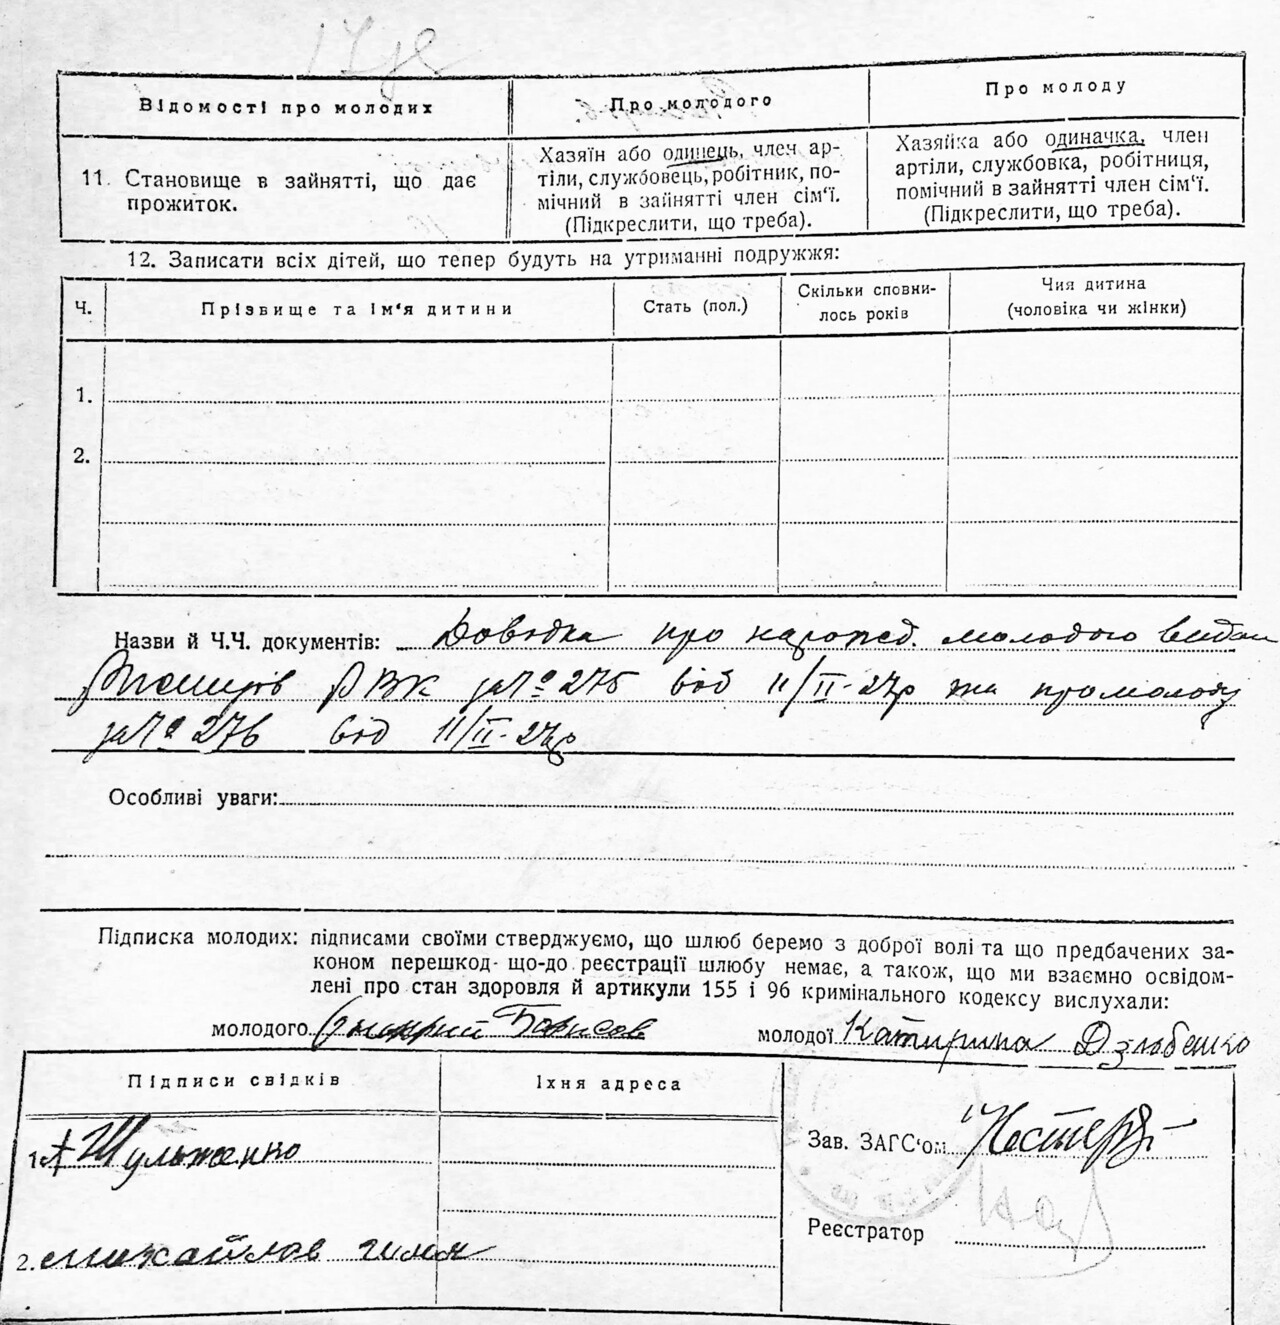 Відомості про молодих
Про молодого
Про молоду
11. Становище в зайнятті, що дає
прожиток.
Хазяїн або одинець, член ар-
тіли, службовець, робітник, по-
мічний в зайнятті член сім‘ї.
(Підкреслити, що треба).
Хазяйка або одиначка, член
артіли, службовка, робітниця,
помічний в зайнятті член сім‘ї.
(Підкреслити, що треба).
12. Записати всіх дітей, що тепер будуть на утриманні подружжя:
Ч.
Прізвище та ім‘я дитини
Стать (пол.)
Скільки сповни-
лось років
Чия дитина
(чоловіка чи жінки)
1.
2.
Назви й Ч.Ч. документів: Довідка про народжд. молодого видан
РВК за № 275 від 11/II-27р та про молоду
за № 276 від 11/II-27р
Особливі уваги:
Підписка молодих: підписами своїми стверджуємо, що шлюб беремо з доброї волі та що предбачених за-
коном перешкод що-до реєстрації шлюбу немає, а також, що ми взаємно освідом-
лені про стан здоровля й артикули 155 і 96 кримінального кодексу вислухали:
молодого Борисов
молодої Катирина Дзюбенко
Підписи свідків
Їхня адреса
1. Шульженко
Зав. ЗАГС‘ом
2. михайлов
Реєстратор